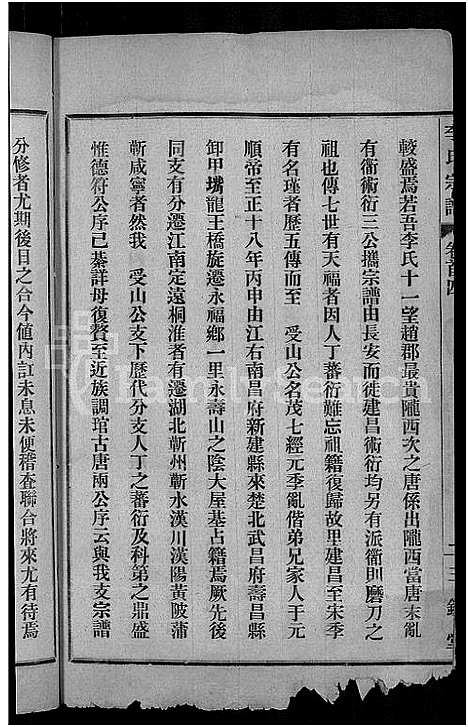 李氏宗譜 卷首四
較盛焉若吾李氏十一望趙郡最貴隴西次之唐係出隴西當唐末亂
有衞術衍三公攜宗譜由長安而徙建昌術衍均另有派衞則磨刀之
祖也傳七世有天福者因人丁蕃衍難忘祖籍復歸故里建昌至宋季
有名瑾者歷五傳而至 受山公名茂七經元季亂偕弟兄家人于元
順帝至正十八年丙申由江右南昌府新建縣來楚北武昌府壽昌縣
卸甲嘴龍王橋旋遷永福鄉一里永壽山之陰大屋基占籍焉厥先後
同支有分遷江南定遠桐淮者有遷湖北蘄州蘄水漢川漢陽黄陂蒲
蘄咸寧者然我 受山公支下歷代分支人丁之蕃衍及科第之鼎盛
惟德符公序已綦詳毋復贅至近族調琯古唐兩公序云與我支宗譜
分修者尤期後日之合今値內訌未息未便稽查聯合將來尤有待焉
FamilySearch